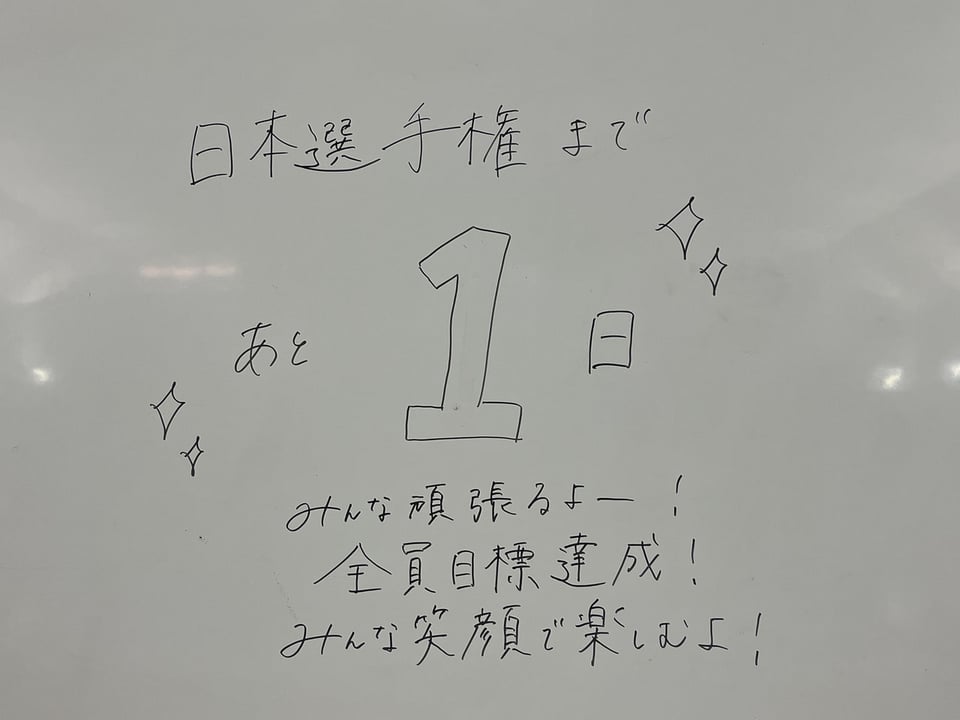 日本選手権まで
あと 1 日
みんな頑張るよー!
全員目標達成!
みんな笑顔で楽しむよ!